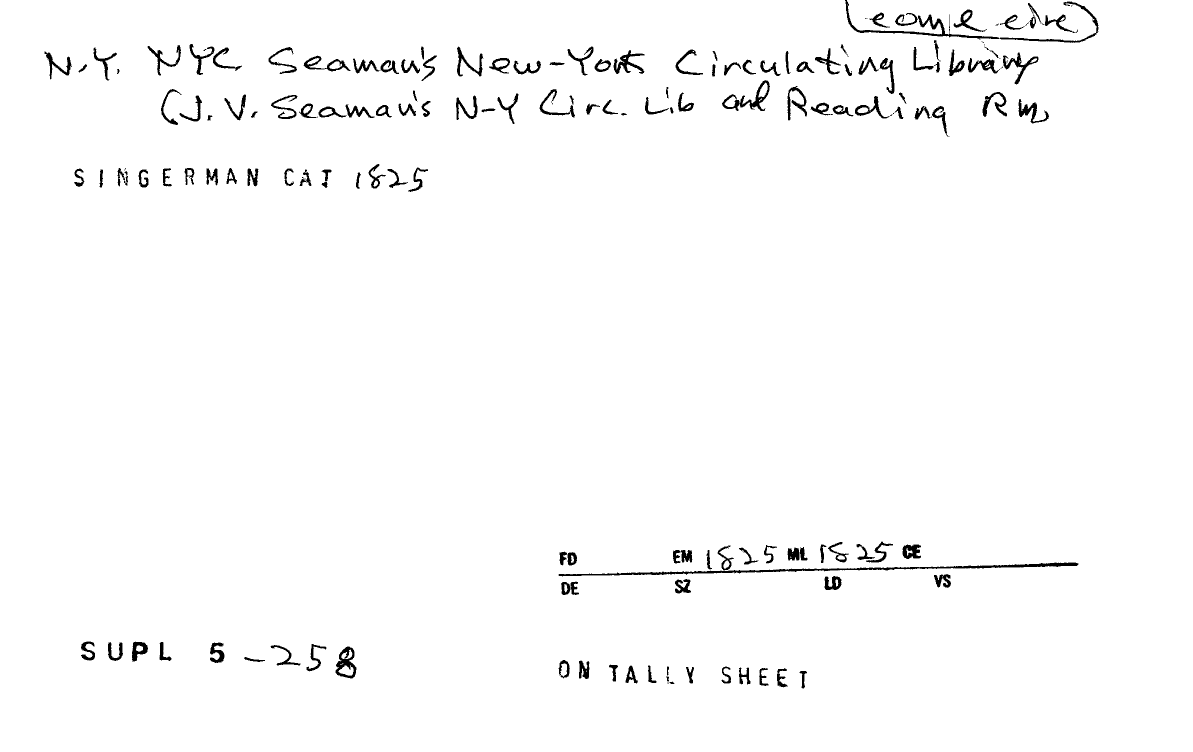 N.Y. NYC Seaman's New-York Circulating Library
(J. V. Seaman's N-Y Circ. Lib and Reading Rm
SINGERMAN CAT 1825
FD EM 1825 ML 1825 CE
DE SZ LD VS
SUPL 5-258
ON TALLY SHEET